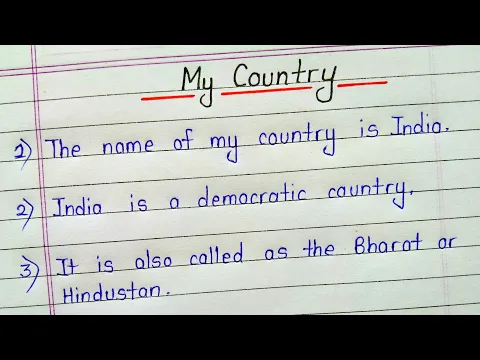 My Country
1) The name of my country is India.
2) India is a democratic country.
3) It is also called as the Bharat or
Hindustan.